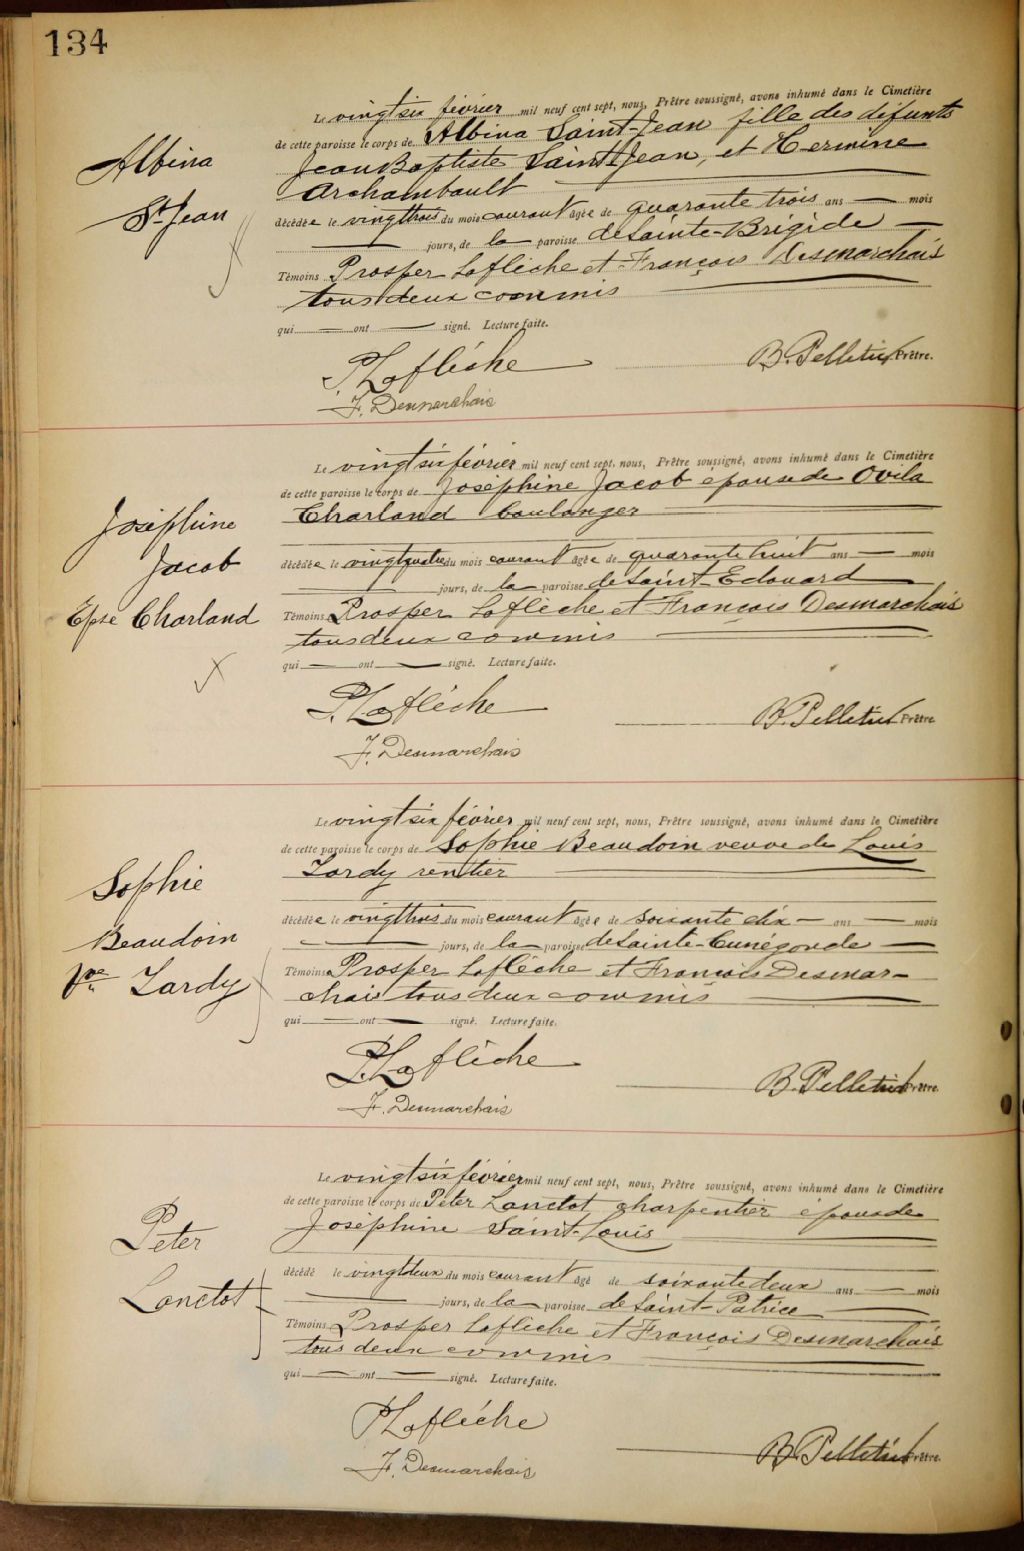 134
Albina
St-Jean
Le vingtsix février mil neuf cent sept, nous, Prêtre soussigné, avons inhumé dans le Cimetière
de cette paroisse le corps de Albina Saint-Jean fille des défunts
Jean Baptiste Saint-Jean, et Hermine
Archambault
décédée le vingttrois du mois courant âgée de quarante trois ans — mois
— jours, de la paroisse de Sainte-Brigide —
Témoins Prosper Laflèche et François Desmarchais
tous deux commis
qui — ont — signé. Lecture faite.
P. Laflèche
B. Pelletier Prêtre.
F. Desmarchais
Joséphine
Jacob
Epse Charland
Le vingtsix février mil neuf cent sept, nous, Prêtre soussigné, avons inhumé dans le Cimetière
de cette paroisse le corps de Joséphine Jacob épouse de Ovila
Charland boulanger
décédée le vingtquatre du mois courant âgée de quarante huit ans — mois
— jours, de la paroisse de Saint-Edouard
Témoins Prosper Laflèche et François Desmarchais
tous deux commis
qui — ont — signé. Lecture faite.
P. Laflèche
B. Pelletier Prêtre
F. Desmarchais
Sophie
Beaudoin
Vve Lardy
Le vingtsix février mil neuf cent sept, nous, Prêtre soussigné, avons inhumé dans le Cimetière
de cette paroisse le corps de Sophie Beaudoin veuve de Louis
Lardy rentier
décédée le vingttrois du mois courant âgée de soixante dix — ans — mois
— jours, de la paroisse de Sainte-Cunégonde —
Témoins Prosper Laflèche et François Desmar-
chais tous deux commis
qui — ont — signé. Lecture faite.
P. Laflèche
B. Pelletier Prêtre.
F. Desmarchais
Peter
Lanctot
Le vingtsix février mil neuf cent sept, nous, Prêtre soussigné, avons inhumé dans le Cimetière
de cette paroisse le corps de Peter Lanctot, charpentier époux de
Joséphine Saint-Louis
décédé le vingtdeux du mois courant âgé de soixante deux ans — mois
— jours, de la paroisse de Saint-Patrice
Témoins Prosper Laflèche et François Desmarchais
tous deux commis
qui — ont — signé. Lecture faite.
P Laflèche
B. Pelletier Prêtre.
F. Desmarchais